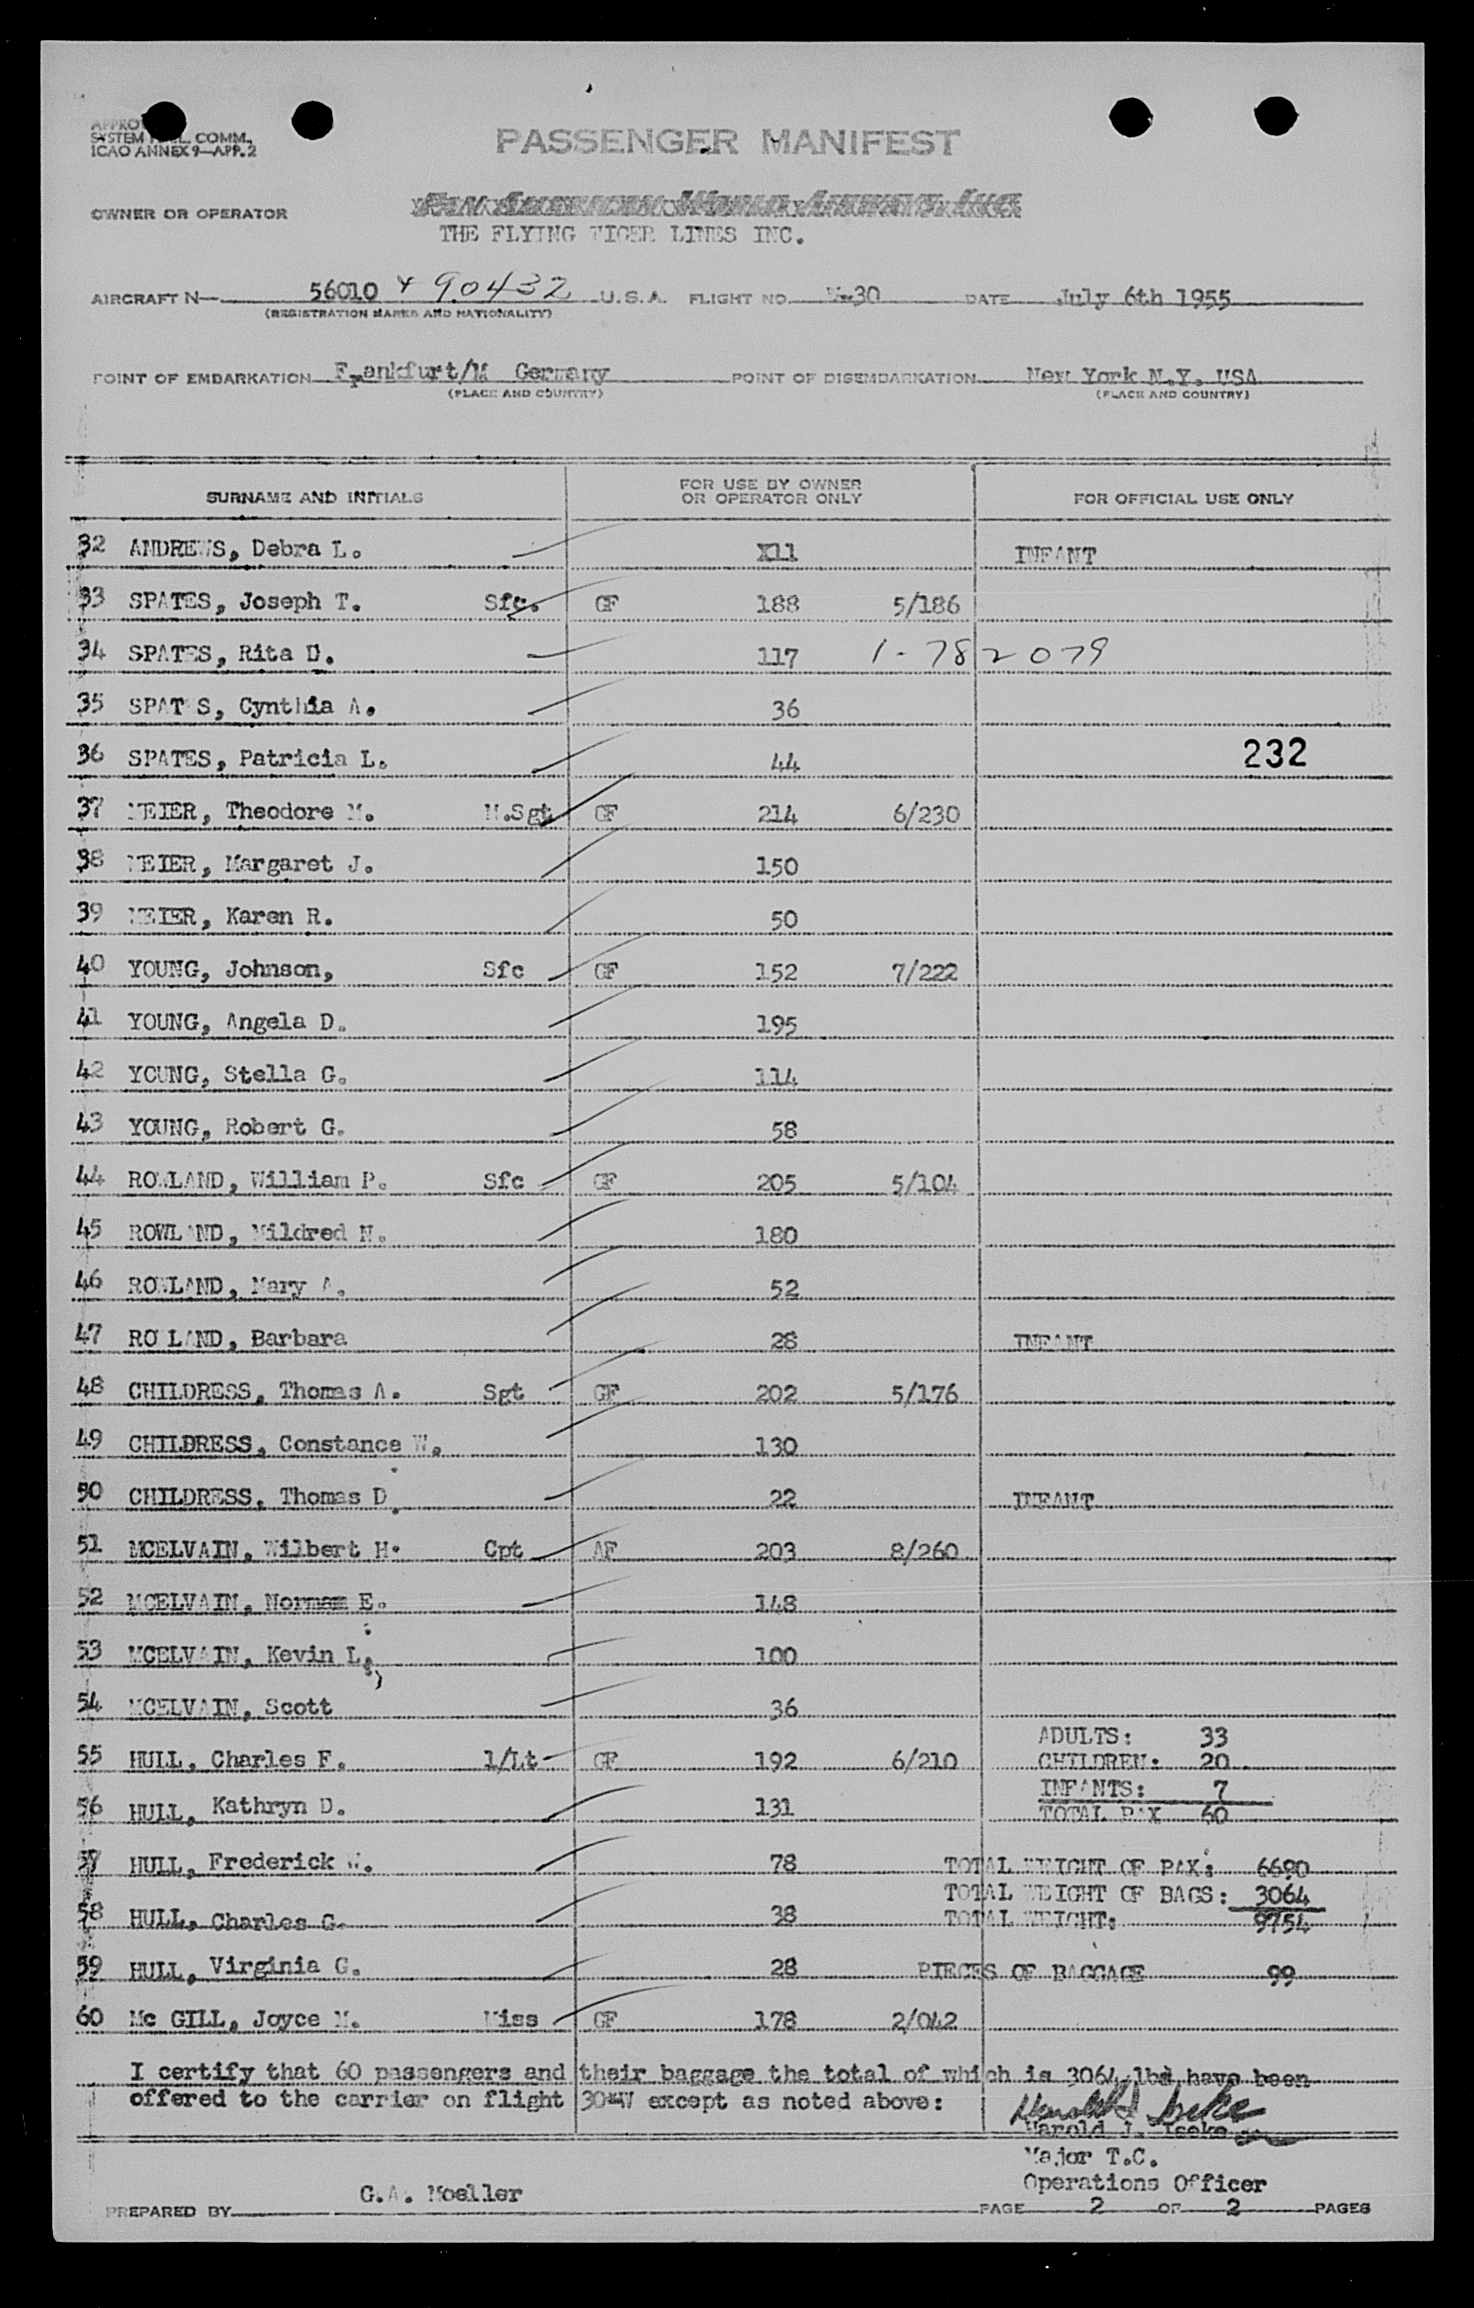 PASSENGER MANIFEST
SYSTEM COMM.
ICAO ANNEX 9—APP. 2
OWNER OR OPERATOR
THE FLYING TIGER LINES INC.
AIRCRAFT N— 56010 + 90432 U.S.A. FLIGHT NO. -30 DATE July 6th 1955
(REGISTRATION MARKS AND NATIONALITY)
POINT OF EMBARKATION Frankfurt/M Germany POINT OF DISEMBARKATION New York N.Y. USA
(PLACE AND COUNTRY) (PLACE AND COUNTRY)
SURNAME AND INITIALS FOR USE BY OWNER OR OPERATOR ONLY FOR OFFICIAL USE ONLY
32 ANDREWS, Debra L. X11 INFANT
33 SPATES, Joseph T. Sfc. GF 188 5/186
34 SPATES, Rita D. 117 1-782079
35 SPATES, Cynthia A. 36
36 SPATES, Patricia L. 44 232
37 MEIER, Theodore M. M.Sgt GF 214 6/230
38 MEIER, Margaret J. 150
39 MEIER, Karen R. 50
40 YOUNG, Johnson, Sfc GF 152 7/222
41 YOUNG, Angela D. 195
42 YOUNG, Stella G. 114
43 YOUNG, Robert G. 58
44 ROWLAND, William P. Sfc GF 205 5/104
45 ROWLAND, Mildred N. 180
46 ROWLAND, Mary A. 52
47 ROWLAND, Barbara 28 INFANT
48 CHILDRESS, Thomas A. Sgt GF 202 5/176
49 CHILDRESS, Constance W. 130
50 CHILDRESS, Thomas D. 22 INFANT
51 MCELVAIN, Wilbert H. Cpt AF 203 8/260
52 MCELVAIN, Normam E. 148
53 MCELVAIN, Kevin L. 100
54 MCELVAIN, Scott 36
ADULTS: 33
55 HULL, Charles F. 1/Lt GF 192 6/210 CHILDREN: 20
INFANTS: 7
56 HULL, Kathryn D. 131 TOTAL PAX 60
57 HULL, Frederick W. 78 TOTAL WEIGHT OF PAX: 6690
TOTAL WEIGHT OF BAGS: 3064
58 HULL, Charles G. 38 TOTAL WEIGHT: 9754
59 HULL, Virginia G. 28 PIECES OF BAGGAGE 99
60 Mc GILL, Joyce M. Miss GF 178 2/042
I certify that 60 passengers and their baggage the total of which is 3064 lbs have been
offered to the carrier on flight 30-W except as noted above:
Harold J. Iseke
Major T.C.
Operations Officer
PREPARED BY G.A. Moeller PAGE 2 OF 2 PAGES